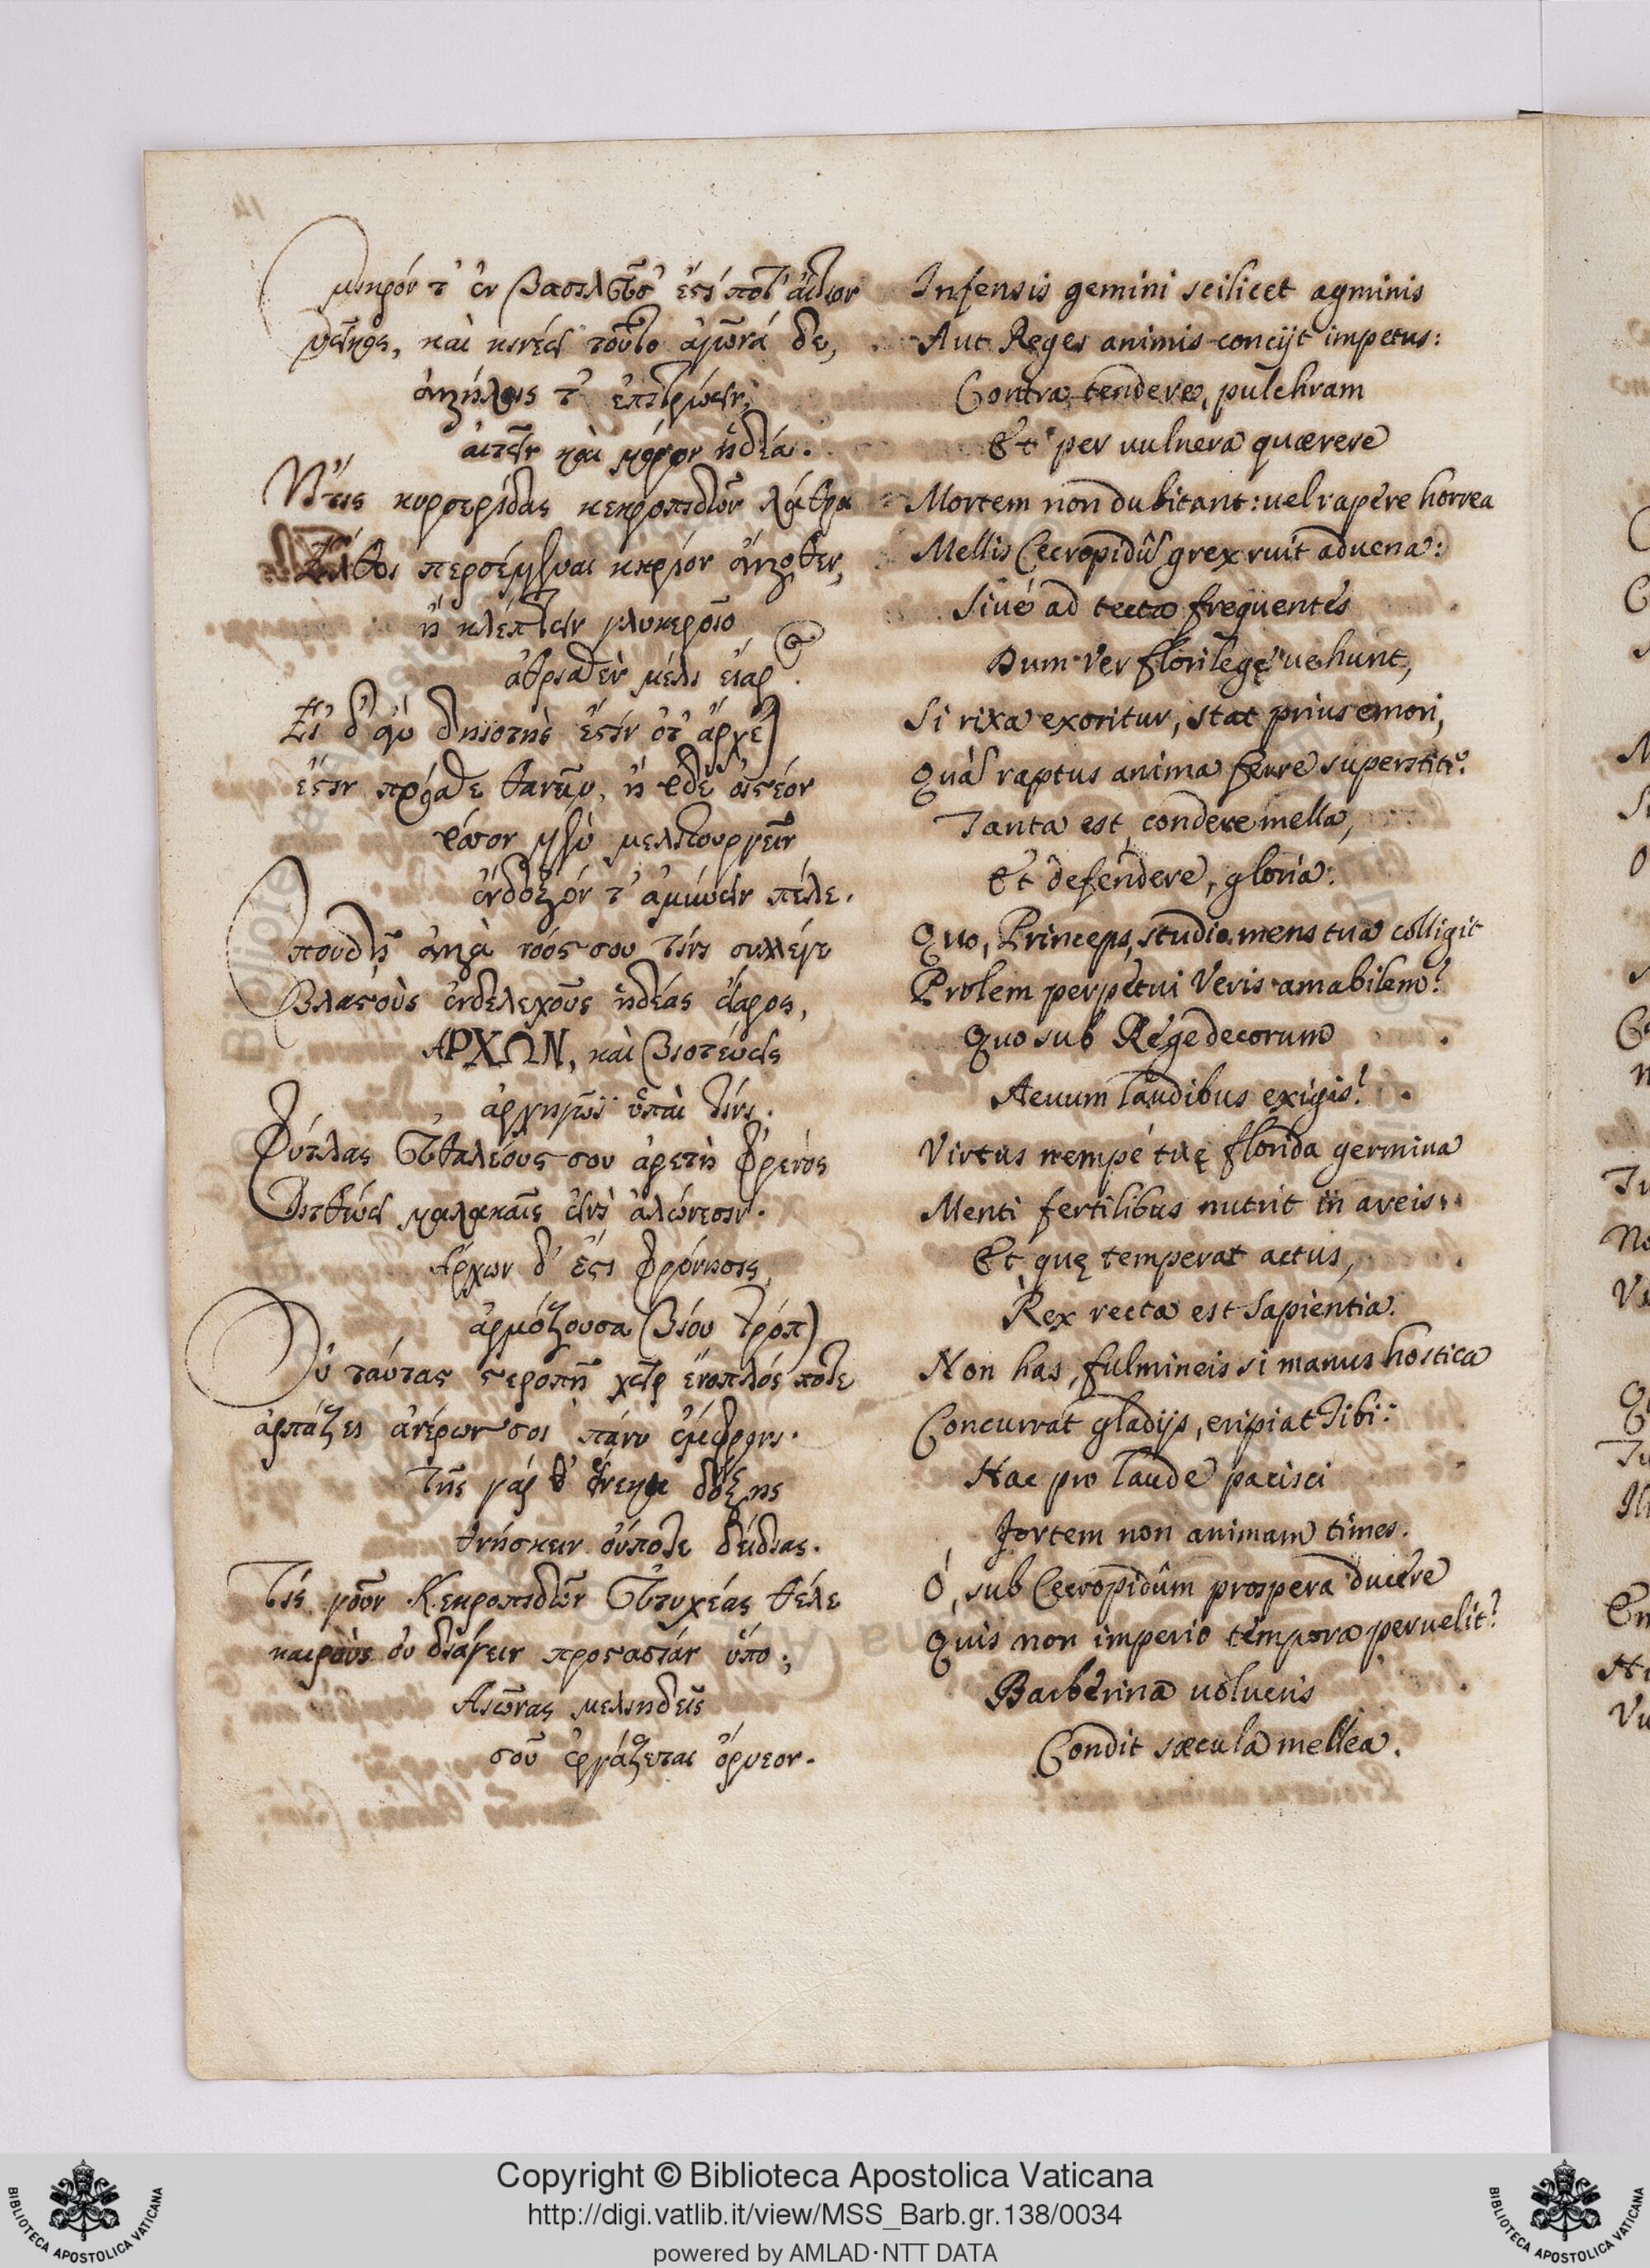 σμικρόν τ' ἐν βασιλεῦσ' ἐστί ποτ' αἴτιον
νείκης, καὶ κινέει τοῦτο ἀγῶνά δε,
αἰτεῖν καὶ μόρον ἡδέα.
κυρσερίδας κεκροπιδῶν λάθρα
ἢ κλέπτειν γλυκεροῖο
μέλι εἶαρ.
Εἰ δ' οὖν δηιοτὴς ἔστιν ὅτ' ἄρχε)
ἔστιν πρόσθε θανεῖν, ἢ
μελιτουργεῖν
ἔνδοξόν τ' ἀμύνειν πέλε.
σπουδῇ νόος σου τίνι συλλέγει
βλαστοὺς ἐνδελεχοῦς ἡδέας εἴαρος,
ΑΡΧΩΝ, καὶ βιοτεύεις
ἀρχηγῷ ὑπαὶ τίνι;
Φύτλας εὐθαλέους σου ἀρετὴ φρενὸς
μαλακαῖς εἰνὶ ἀλώνεσιν.
Ἄρχων δ' ἐστὶ φρόνησις
ἁρμόζουσα βίου τρόπ)
Οὐ ταύτας στεροπῇ χεὶρ ἔνοπλός ποτε
ἁρπάζει ἀνέρων σοι πάνυ
τῆς γάρ θ' ἕνεκα δόξης
θνήσκειν οὔποτε δείδιας.
Τίς γοῦν Κεκροπιδῶν εὐτυχέας θέλε
καιροὺς οὐ διάγειν προστασίαν ὑπό;
Αἰῶνας μελιηδεῖς
σοῦ ἐργάζεται ὄρνεον.
Infensis gemini scilicet agminis
Aut Reges animis concijt impetus:
Contra tendere, pulchram
Et per vulnera quærere
Mortem non dubitant: uel rapere horrea
Mellis Cecropidũ grex ruit aduena:
Siue ad tecta frequentes
Dum Ver florilegę uehunt,
Si rixa exoritur, stat prius emori,
Quã raptus anima ferre superstite.
Tanta est condere mella,
Et defendere, gloria.
Quo, Princeps, studio mens tua colligit
Prolem perpetui Veris amabilem?
Quo sub Rege decorum
Aeuum laudibus exigis?
Virtus nempe tuę florida germina
Menti fertilibus nutrit in areis:
Et quę temperat actus,
Rex recta est Sapientia.
Non has, fulmineis si manus hostica
Concurrat gladijs, eripiat Tibi:
Hac pro laude pacisci
Fortem non animam times.
O, sub Cecropidûm prospera ducere
Quis non imperio tempora peruelit?
Barberina uolucris
Condit sæcula mellea.
Copyright © Biblioteca Apostolica Vaticana
http://digi.vatlib.it/view/MSS_Barb.gr.138/0034
powered by AMLAD·NTT DATA
BIBLIOTECA APOSTOLICA VATICANA
BIBLIOTECA APOSTOLICA VATICANA